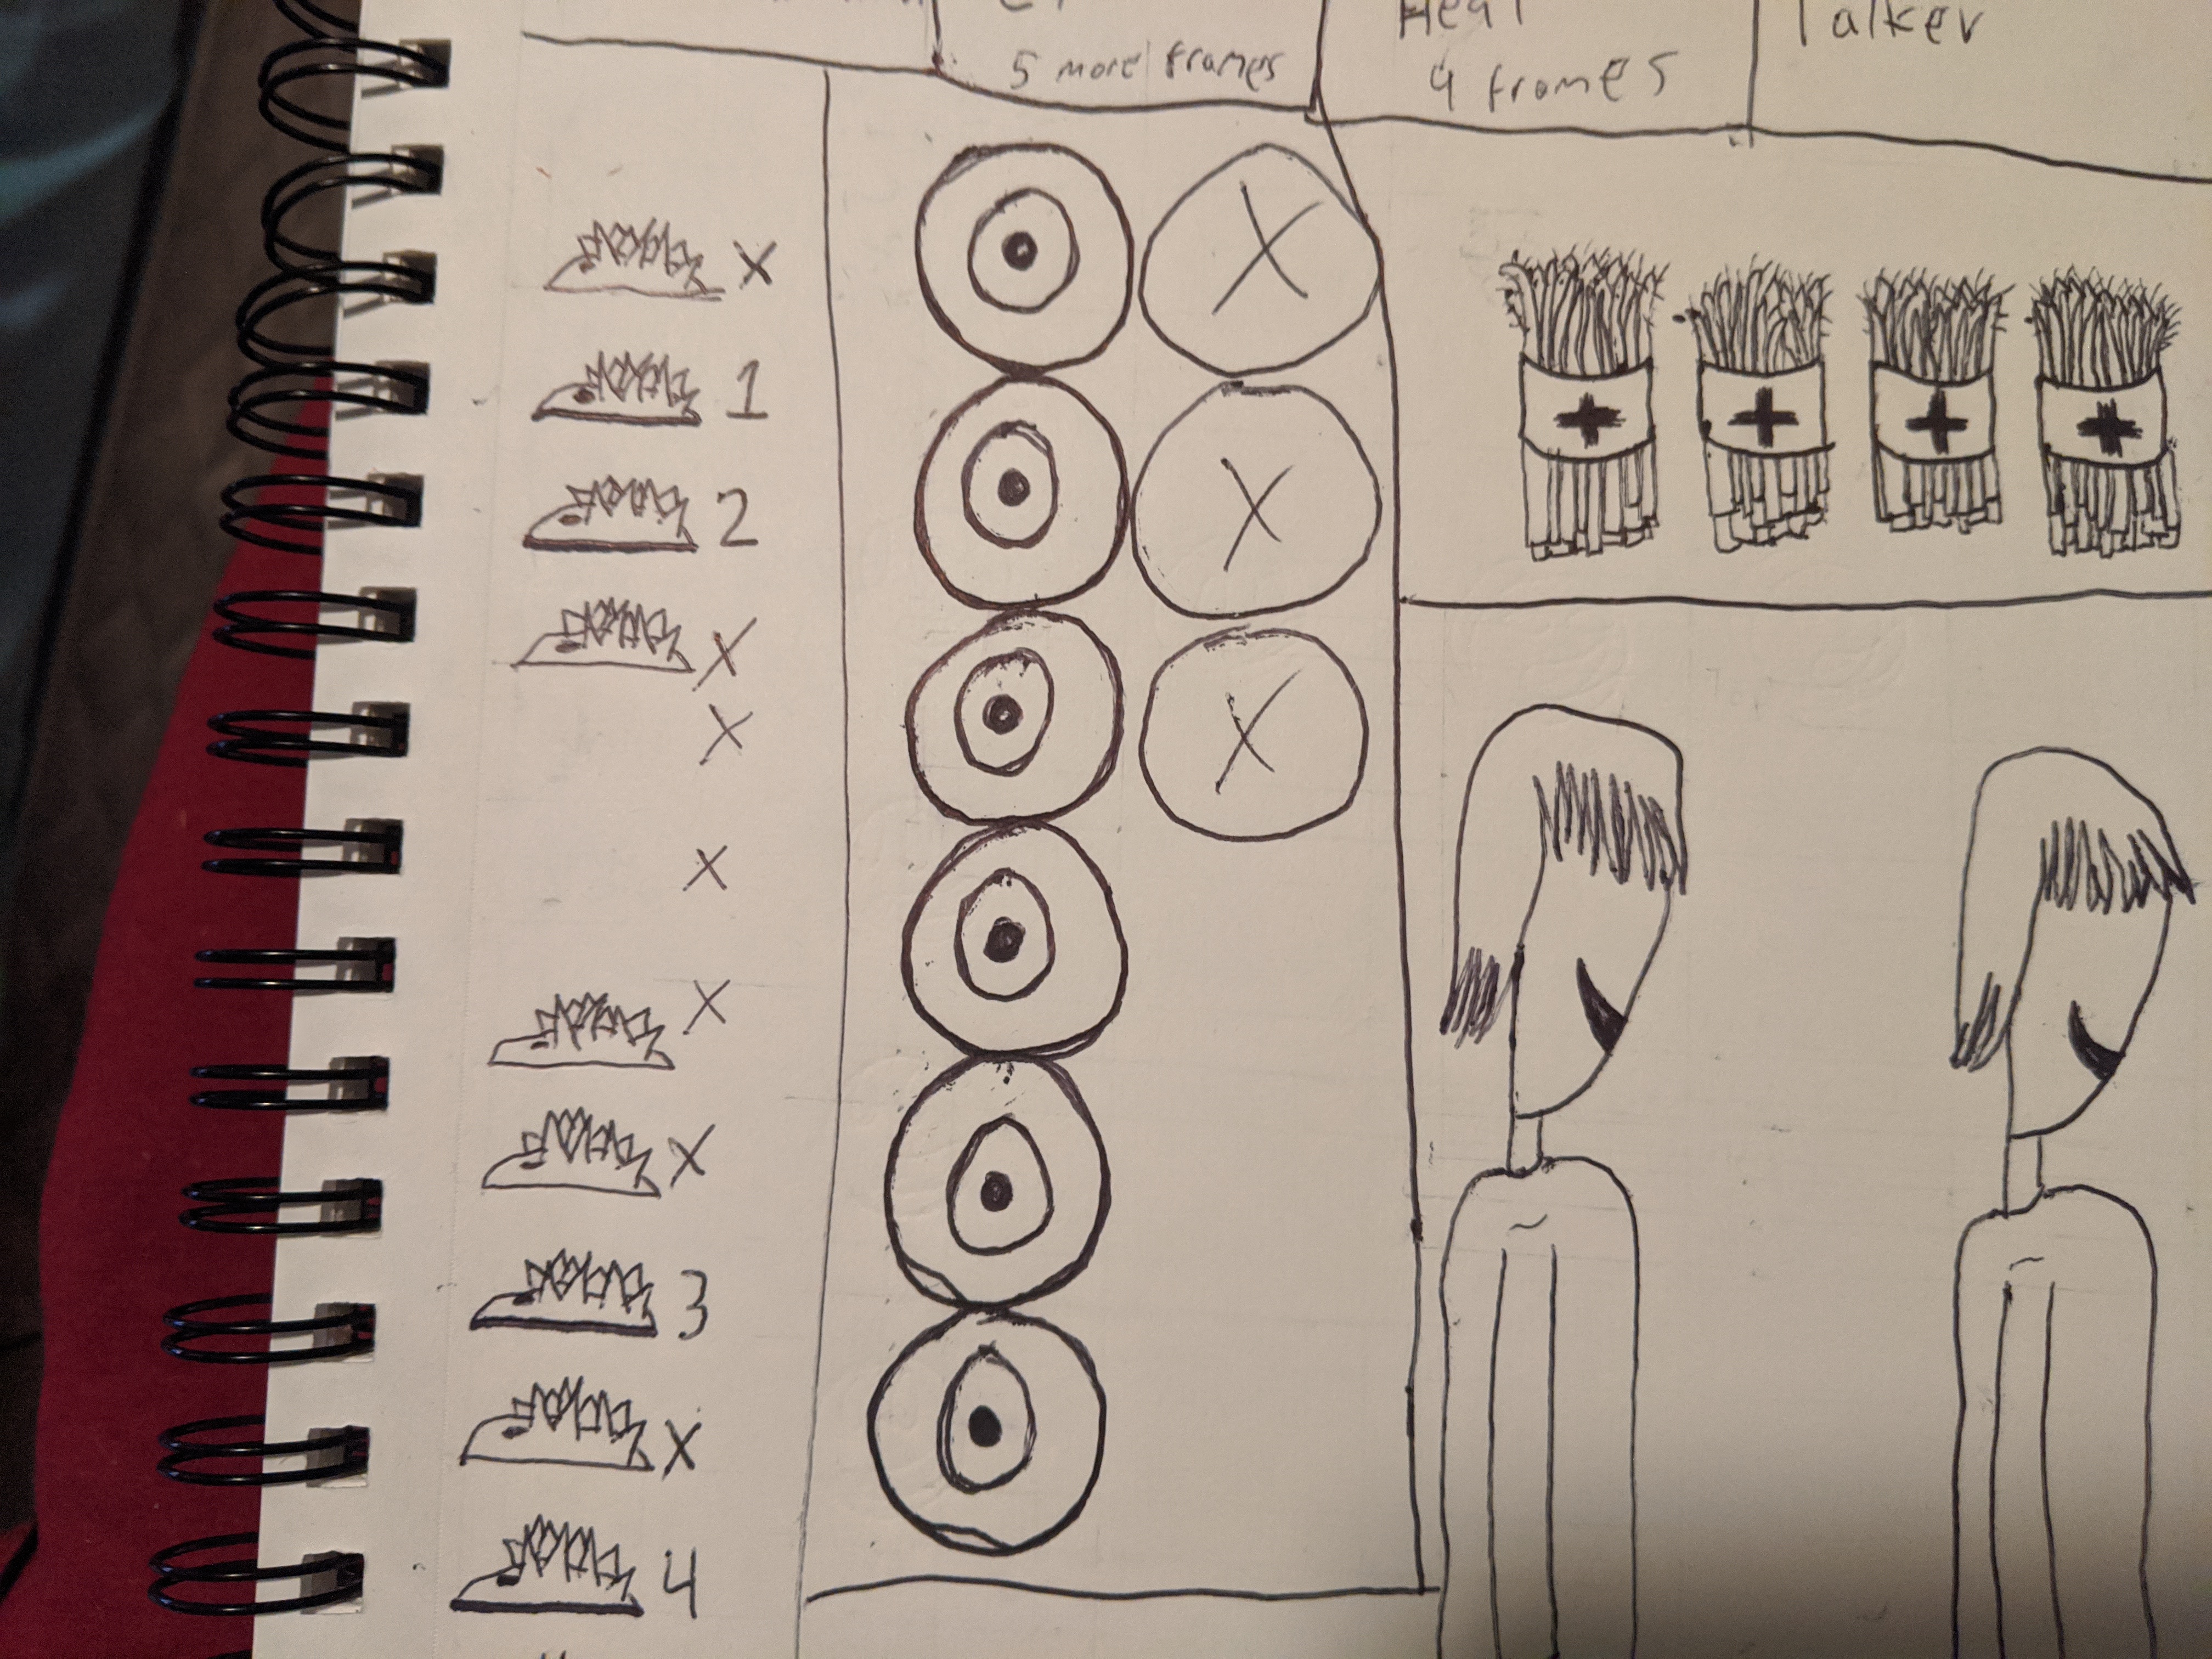 5 more frames
Heal
4 frames
Talker
X
1
2
X
X
X
X
X
3
X
4
X
X
X